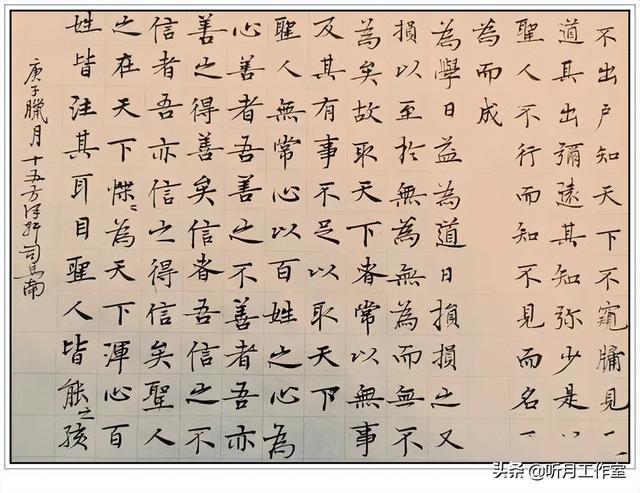 不出戶知天下不窺牖見
道其出彌遠其知弥少是
聖人不行而知不見而名
為而成
為學日益為道日損損之又
損以至於無為無為而無不
為矣故取天下者常以無事
及其有事不足以取天下
聖人無常心以百姓之心為
心善者吾善之不善者吾亦
善之得善矣信者吾信之不
信者吾亦信之得信矣聖人
之在天下惵〻為天下渾心百
姓皆注其耳目聖人皆能之孩
庚子臘月十五方軒司馬南
头条 @听月工作室